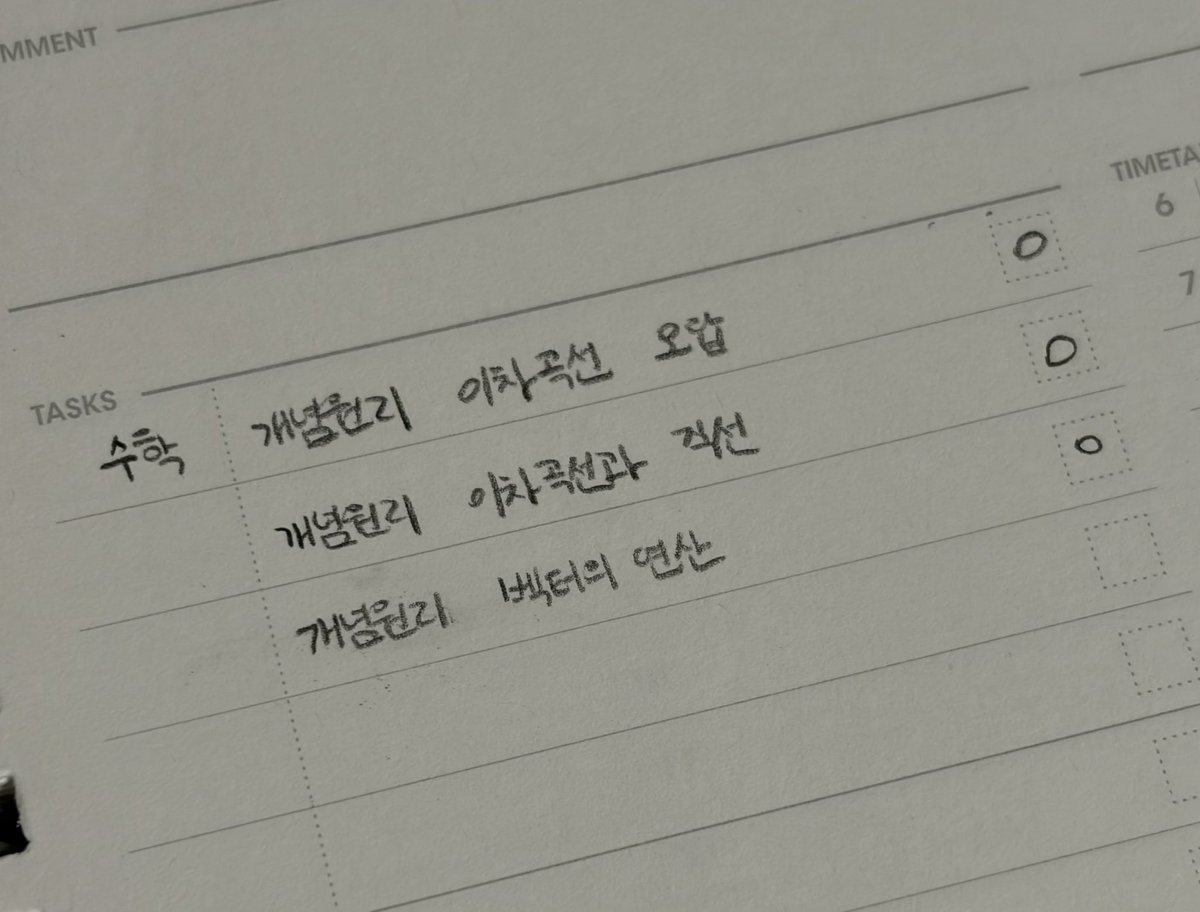 MMENT
TIMETA
6
7
TASKS
수학 개념원리 이차곡선 오답 O
개념원리 이차곡선과 직선 O
개념원리 벡터의 연산 O